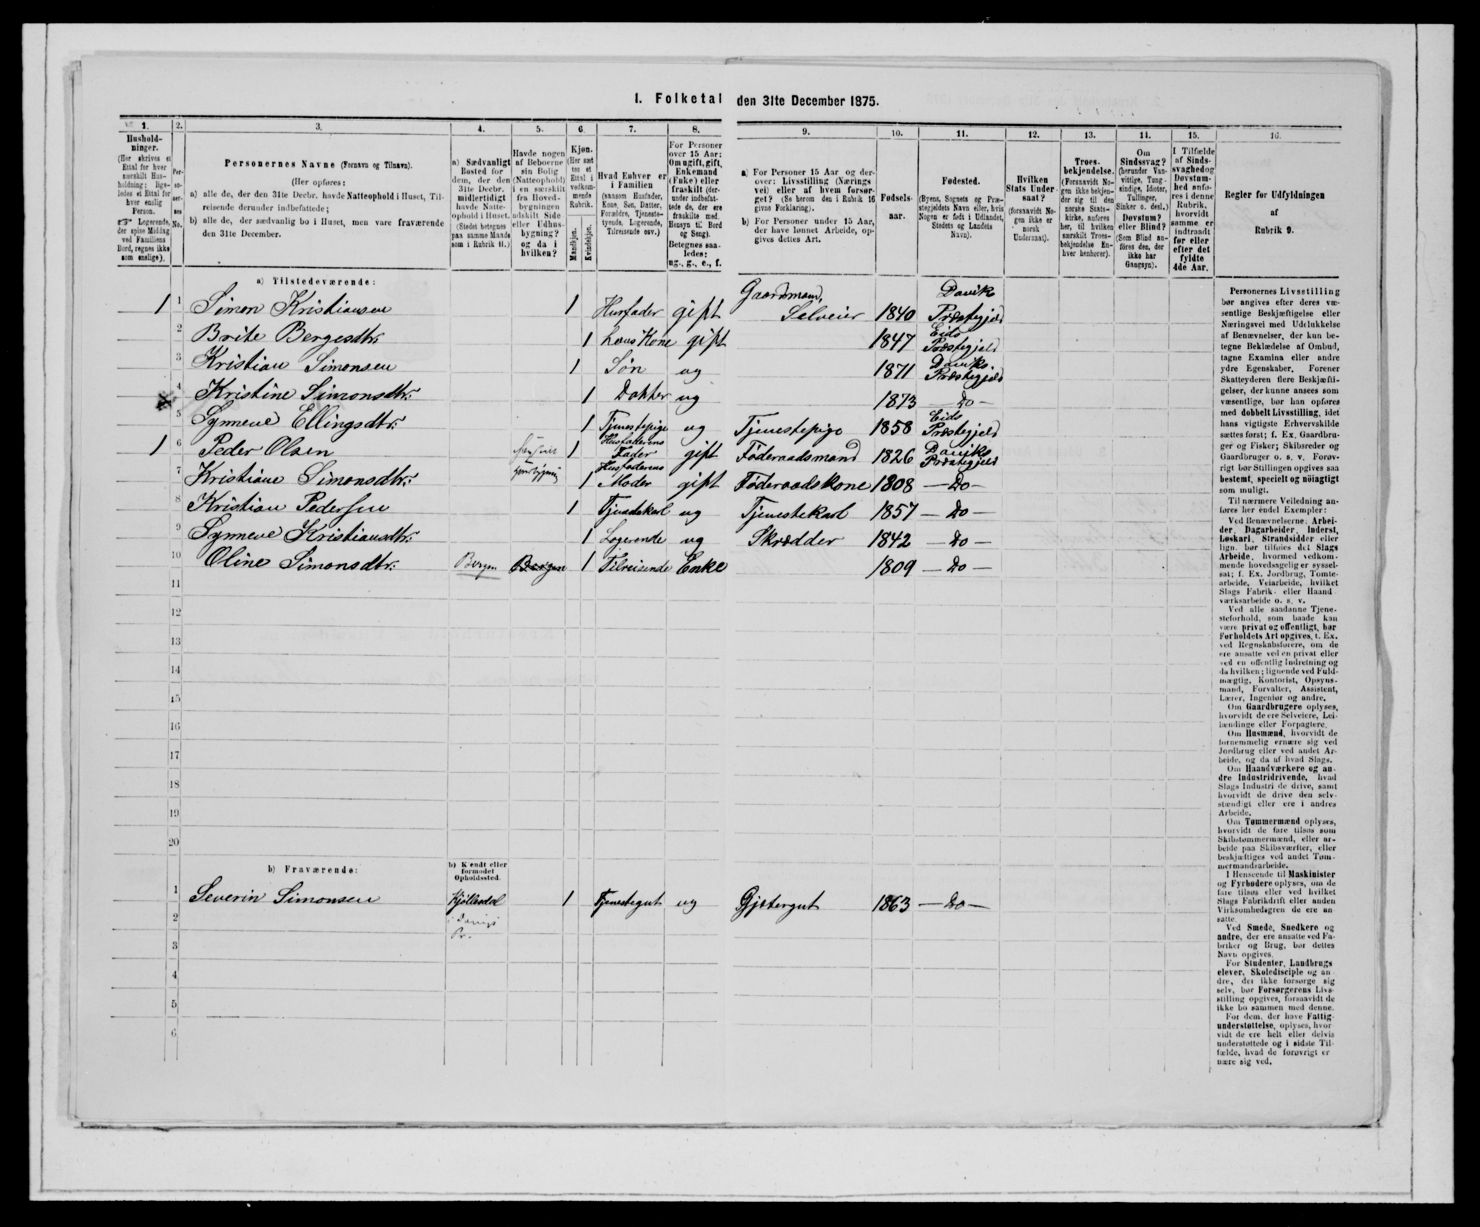 I. Folketal den 31te December 1875.
1. 2. 3. 4. 5. 6. 7. 8. 9. 10. 11. 12. 13. 14. 15. 16.
Hushold-
ninger.
(Her skrives et
Ettal for hver
særskilt Hus-
holdning; lige-
ledes et Ettal for
hver enslig
Person.
Logerende,
der spise Middag
ved Familiens
Bord, regnes ikke
som enslige).
Per-
so-
ner-
nes
No.
Personernes Navne (Fornavn og Tilnavn).
(Her opføres:
a) alle de, der den 31te Decbr. havde Natteophold i Huset, Til-
reisende derunder indbefattede;
b) alle de, der sædvanlig bo i Huset, men vare fraværende
den 31te December.
a) Sædvanligt
Bosted for
dem, der den
31te Decbr.
midlertidigt
havde Natte-
ophold i Huset.
(Stedet betegnes
paa samme Maade
som i Rubrik 11.)
Havde nogen
af Beboerne
sin Bolig
(Natteophold)
i en særskilt
fra Hoved-
bygningen
adskilt Side-
eller Udhus-
bygning?
og da i
hvilken?
Kjøn.
(Her sæt-
tes et
Ettal i
vedkom-
mende
Rubrik.
Mandkjøn.
Kvindekjøn.
Hvad Enhver er
i Familien
(saasom Husfader,
Kone, Søn, Datter,
Forældre, Tjeneste-
tyende, Logerende,
Tilreisende osv.)
For Personer
over 15 Aar:
Om ugift, gift,
Enkemand
(Enke) eller
fraskilt (der-
under indbefat-
tede de, der ere
fraskilte med
Hensyn til Bord
og Seng).
Betegnes saa-
ledes:
ug., g., e., f.
a) For Personer 15 Aar og der-
over: Livsstilling (Nærings-
vei) eller af hvem forsør-
get? (Se herom den i Rubrik 16
givne Forklaring).
b) For Personer under 15 Aar,
der have lønnet Arbeide, op-
gives dettes Art.
Fødsels-
aar.
Fødested.
(Byens, Sognets og Præ-
stegjeldets Navn eller, hvis
Nogen er født i Udlandet,
Stedets og Landets
Navn).
Hvilken
Stats Under-
saat?
(forsaavidt No-
gen ikke er
norsk
Undersaat).
Troes-
bekjendelse.
(Forsaavidt No-
gen ikke bekjen-
der sig til den
norske Stats-
kirke, anføres
her, til hvilken
særskilt Troes-
bekjendelse En-
hver henhører).
Om
Sindssvag?
(herunder Van-
vittige, Tung-
sindige, Idioter,
Tullinger,
Sinker o. desl.)
Døvstum?
eller Blind?
(Som Blind an-
føres den, der
ikke har
Gangsyn).
I Tilfælde
af Sinds-
svaghed og
Døvstum-
hed anfø-
res i denne
Rubrik,
hvorvidt
samme er
indtraadt
før eller
efter det
fyldte
4de Aar.
Regler for Udfyldningen
af
Rubrik 9.
a) Tilstedeværende:
1 1 Simon Kristiansen 1 Husfader gift Gaardmand, Selveier 1840 Davik Præstegjeld
2 Brite Bergesdtr. 1 hans Kone gift 1847 Eids Præstegjeld
3 Kristian Simonsen 1 Søn ug 1871 Daviks Præstegjeld
4 Kristine Simonsdtr. 1 Dotter ug 1873 — Do —
5 Synneve Ellingsdtr. 1 Tjenestepige ug Tjenestepige 1858 Eids Præstegjeld
1 6 Peder Olsen Husfaderens Fader gift Føderaadsmand 1826 Daviks Præstegjeld
7 Kristiane Simonsdtr. 1 Husfaderens Moder gift Føderaadskone 1808 — Do —
8 Kristian Pedersen 1 Tjenstekarl ug Tjenestekarl 1857 — Do —
9 Synneve Kristiansdtr. 1 Logerende ug Skrædder 1842 — Do —
10 Oline Simonsdtr. Bergen Bergen 1 Tilreisende Enke 1809 — Do —
11
12
13
14
15
16
17
18
19
20
b) Fraværende:
b) Kjendt eller
formodet
Opholdssted.
1 Severin Simonsen 1 Tjenestegut ug Gjætergut 1863 — Do —
2
3
4
5
6
Personernes Livsstilling
bør angives efter deres væ-
sentlige Beskjæftigelse eller
Næringsvei med Udelukkelse
af Benævnelser, der kun be-
tegne Beklædelse af Ombud,
tagne Examina eller andre
ydre Egenskaber. Forener
Skatteyderen flere Beskjæfti-
gelser, der kunne ansees som
væsentlige, bør han opføres
med dobbelt Livsstilling, idet
hans vigtigste Erhvervskilde
sættes først; f. Ex. Gaardbru-
ger og Fisker; Skibsreder og
Gaardbruger o. s. v. Forøv-
rigt bør Stillingen opgives saa
bestemt, specielt og nøiagtigt
som muligt.
Til nærmere Veiledning an-
føres her endel Exempler:
Ved Benævnelserne, Arbei-
der, Dagarbeider, Inderst,
Løskarl, Strandsidder eller
lign. bør tilføies det Slags
Arbeide, hvormed vedkom-
mende hovedsagelig er syssel-
sat; f. Ex. Jordbrug, Tomte-
arbeide, Veiarbeide, hvilket
Slags Fabrik- eller Haand-
værksarbeide o. s. v.
Ved alle saadanne Tjene-
steforhold, som baade kan
være privat og offentligt, bør
Forholdets Art opgives, t. Ex.
ved Regnskabsførere, om de
ere ansatte ved en privat eller
ved en offentlig Indretning og
da hvilken; lignende ved Fuld-
mægtig, Kontorist, Opsyns-
mand, Forvalter, Assistent,
Lærer, Ingeniør og andre.
Om Gaardbrugere oplyses,
hvorvidt de ere Selveiere, Lei-
lændinge eller Forpagtere.
Om Husmænd, hvorvidt de
fornemmelig ernære sig ved
Jordbrug eller ved andet Ar-
beide, og da af hvad Slags.
Om Haandværkere og an-
dre Industridrivende, hvad
Slags Industri de drive, samt
hvorvidt de drive den selv-
stændigt eller ere i andres
Arbeide.
Om Tømmermænd oplyses,
hvorvidt de fare tilsøs som
Skibstømmermænd, eller ar-
beide paa Skibsværfter, eller
beskjæftiges ved andet Tøm-
mermandsarbeide.
I Henseende til Maskinister
og Fyrbødere oplyses, om de
fare tilsøs eller ved hvilket
Slags Fabrikdrift eller anden
Virksomhedsgren de ere an-
satte.
Ved Smede, Snedkere og
andre, der ere ansatte ved Fa-
briker og Brug, bør dettes
Navn opgives.
For Studenter, Landbrugs-
elever, Skoledisciple og an-
dre, der ikke forsørge sig
selv, bør Forsørgerens Livs-
stilling opgives, forsaavidt de
ikke bo sammen med denne.
For dem, der have Fattig-
understøttelse, oplyses, hvor-
vidt de ere helt eller delvis
understøttede og i sidste Til-
fælde, hvad de forøvrigt er-
nære sig ved.